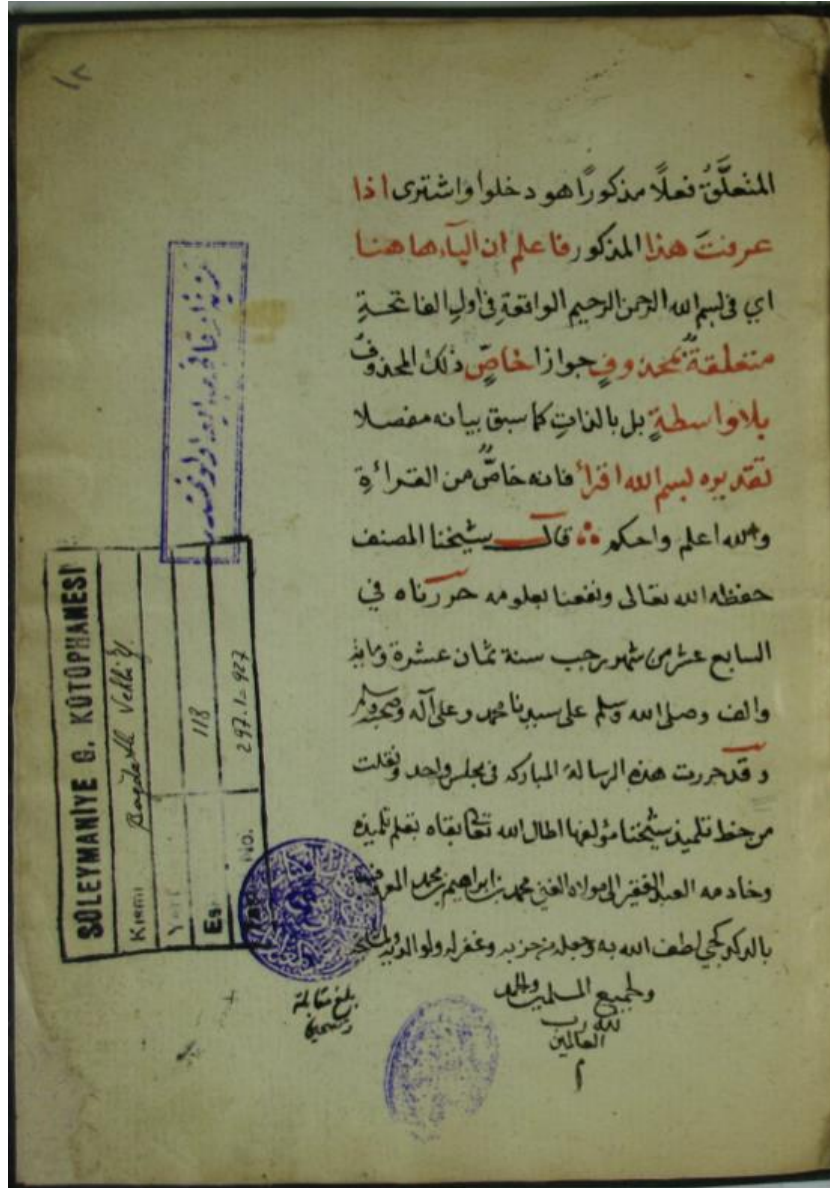 المتعلَّقُ فعلًا مذكورًا هو دخلوا واشترى اذا
عرفتَ هذا المذكور فاعلم ان البآء هاهنا
اي فى بسم الله الرحمن الرحيم الواقعةِ فى اولِ الفاتحةِ
متعلقةٌ بمحذوفٍ جوازا خاصٍّ ذلك المحذوفُ
بلا واسطةٍ بل بالذاتِ كما سبق بيانه مفصلا
تقديره بسم الله اقرأُ فانه خاصٌّ من القرأةِ
والله اعلم واحكم قال شيخنا المصنف
حفظه الله تعالى ونفعنا بعلومه حررناه في
السابع عشر من شهر رجب سنة ثمان عشرة ومائة
والف وصلى الله وسلم على سيدنا محمد وعلى آله وصحبه وسلم
وقد حررت هذه الرسالة المباركه فى مجلس واحد ونقلت
من خط تلميذ شيخنا مؤلفها اطال الله تعالى بقاه بقلم تلميذه
وخادمه العبد الفقير الى مولاه الغنى محمد بن ابراهيم بن محمد المعروف
بالدكدكجي لطف الله به وجعله من حزبه وغفر له ولوالديه
ولجميع المسلمين والحمد
لله رب
العالمين
م
بلغ مقابلة
SÜLEYMANİYE G. KÜTÜPHANESİ
Kısmı Bağdatlı Vehbi
118
297.1-927
NO.
١٨